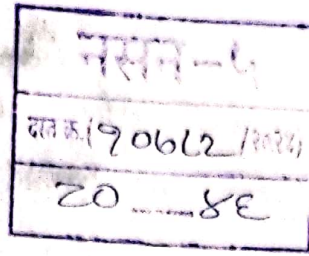 नसन-५
दस्त क्र.(१०७८२/२०२४)
२०.....४६